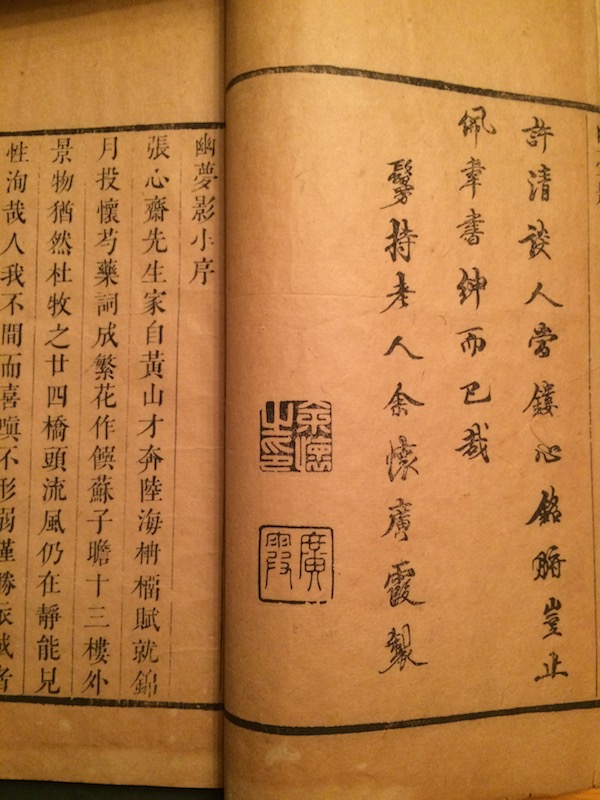 許清談人當鏤心銘腑豈止
佩韋書紳而已哉
鬘持老人余懷廣霞製
余懷之印
廣霞
幽夢影小序
張心齋先生家自黃山才奔陸海柟榴賦就錦
月投懷芍藥詞成繁花作饌蘇子瞻十三樓外
景物猶然杜牧之廿四橋頭流風仍在靜能見
性洵哉人我不間而喜嗔不形弱僅勝衣或者